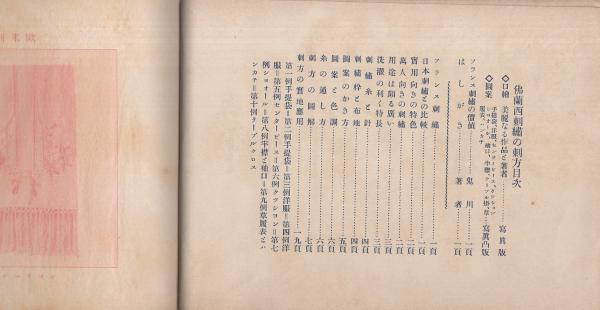 佛蘭西刺繡の刺方目次
◇口繪 美麗なる作品と著者………寫眞版
◇圖案 手提袋、洋服、センターピース、クッション ショオール、袖口、半襟、テーブル掛、草履表、ハンカチ………寫眞凸版
フランス刺繡の價値………鬼川………一頁
はしがき………著者………一頁
フランス刺繡………一頁
日本刺繡との比較………一頁
實用向きの特色………二頁
萬人向きの刺繡………二頁
用途は頗る廣い………二頁
洗濯の利く特長………三頁
刺繡糸と針………四頁
刺繡枠と布地………四頁
圖案のかき方………五頁
圖案と色調………六頁
糸の通し方………六頁
刺方の圖解………七頁
刺方の實地應用………一九頁
第一例手提袋=第二例手提袋=第三例洋服=第四例洋
服=第五例センターピース=第六例クッション=第七
例ショオール=第八例半襟と袖口=第九例草履表とハ
ンカチ=第十例テーブルクロス